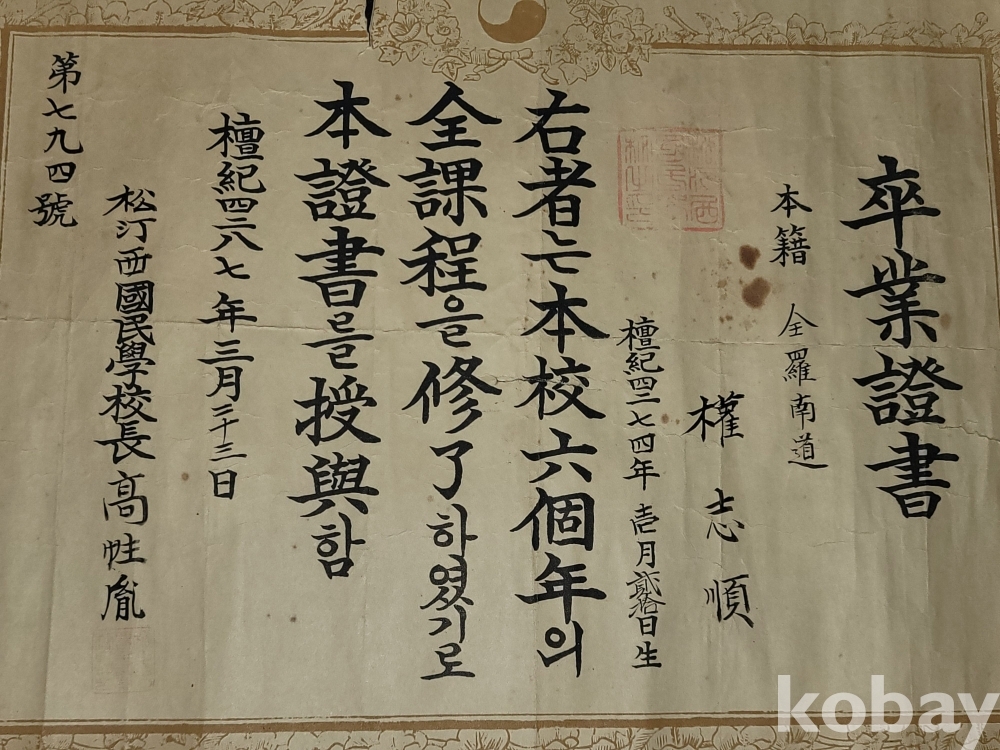 卒業證書
本籍 全羅南道
權志順
檀紀四二七四年壹月貳拾日生
右者는本校六個年의
全課程을修了하였기로
本證書를授與함
檀紀四二八七年三月二十三日
松汀西國民學校長 高
第七九四號
kobay